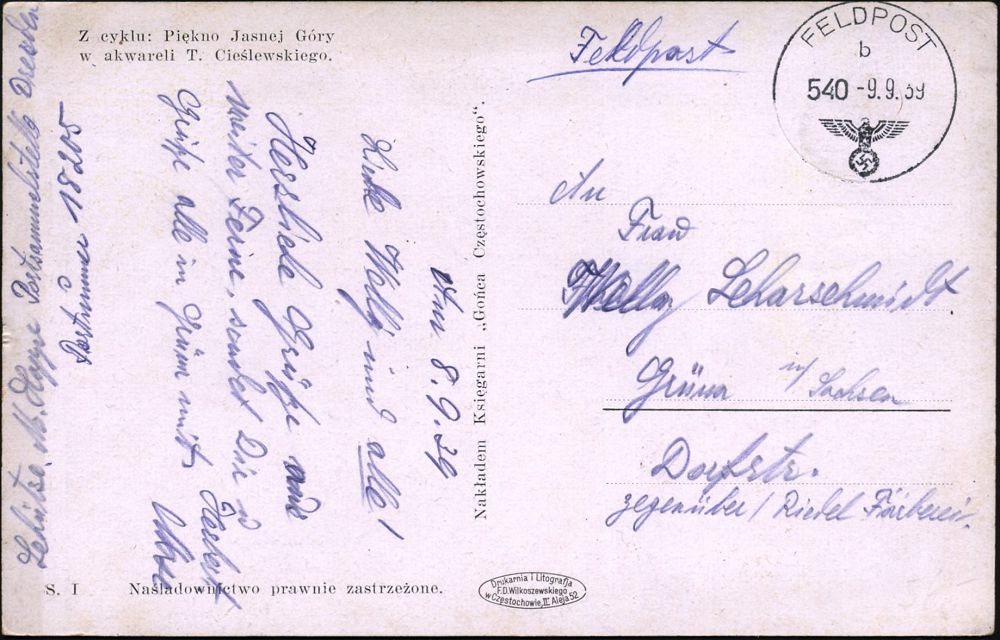 Z cyklu: Piękno Jasnej Góry
w akwareli T. Cieślewskiego.
Feldpost
FELDPOST
b
540 -9.9.39
An
Frau
Willy Scharschmidt
Grüna i/ Sachsen
Dorfstr.
gegenüber/ Riedel Färberei.
Nakładem Księgarni „Gońca Częstochowskiego".
8.9.39
Liebe Milly und alle!
Herzliche Grüße aus
weiter Ferne, sendet Dir u
Grüße alle in Grüna mit
Postsammelstelle Dresden
Postnummer 18205
S. I Naśladownictwo prawnie zastrzeżone.
Drukarnia i Litografja
F.D.Wilkoszewskiego
w Częstochowie, II Aleja 52